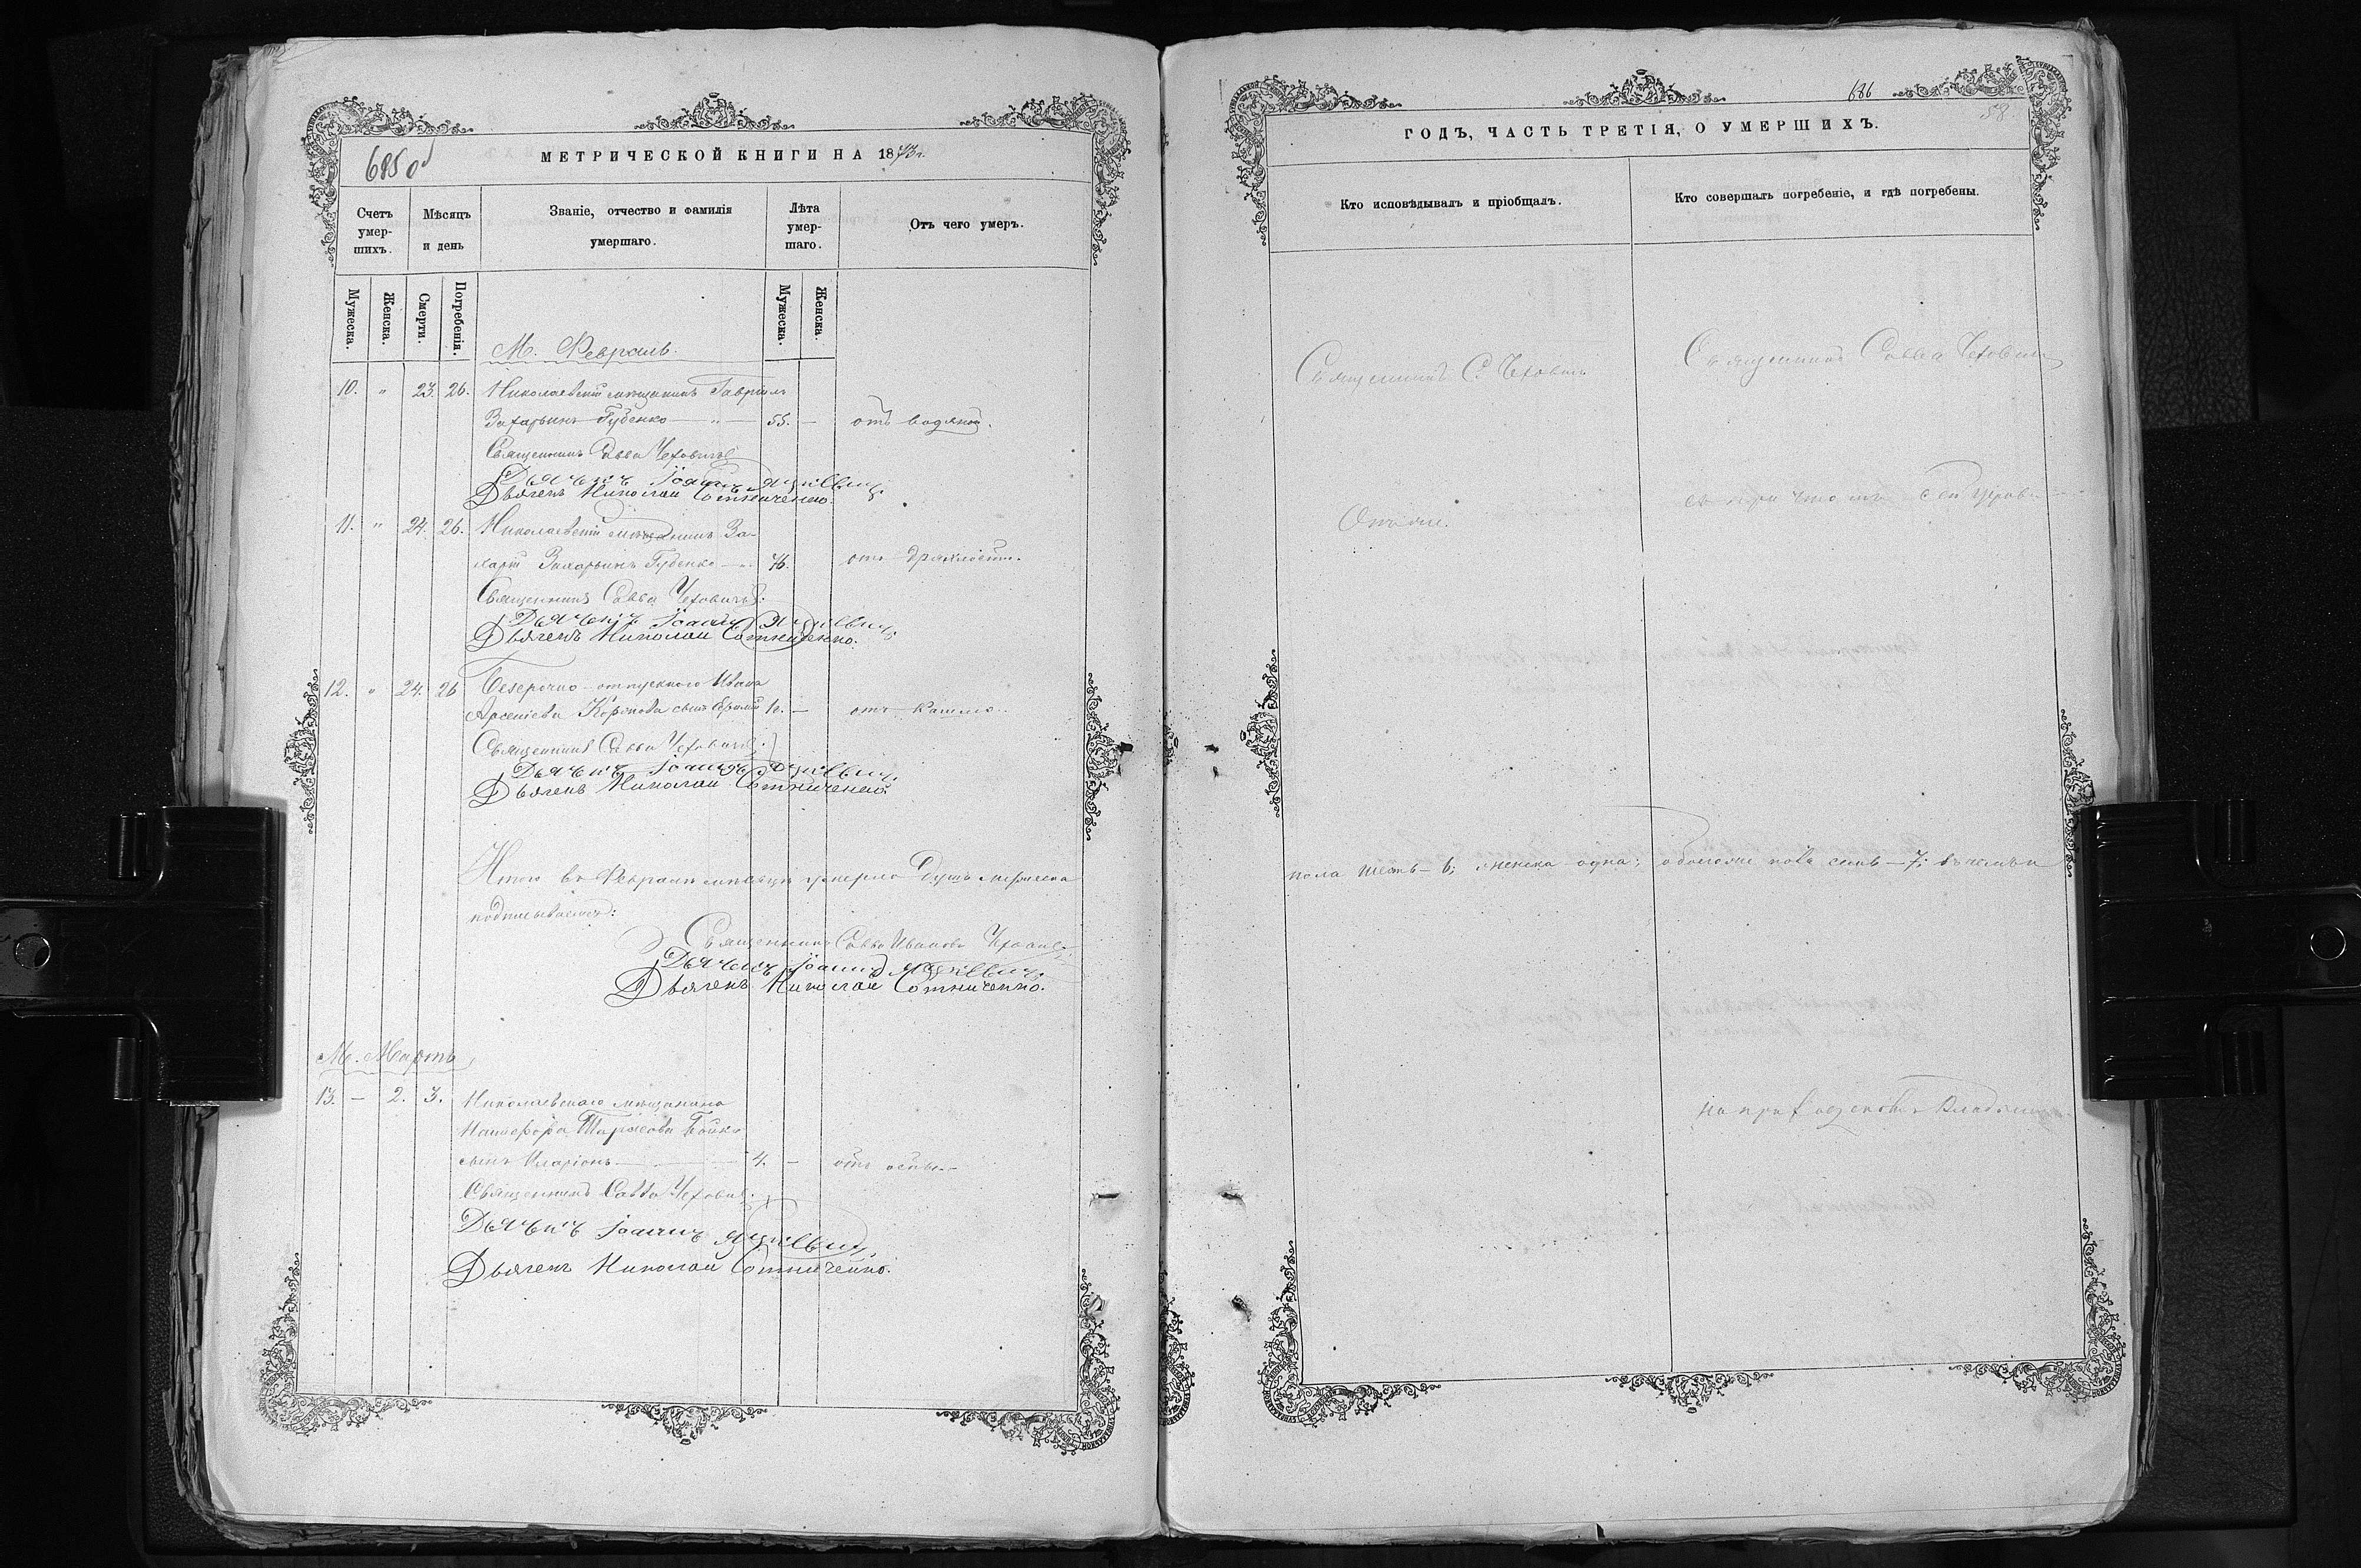 685 об
МЕТРИЧЕСКОЙ КНИГИ НА 1873 г.
Счетъ умер-шихъ.
Мѣсяцъ и день
Званіе, отчество и фамилія умершаго.
Лѣта умер-шаго.
Отъ чего умеръ.
Мужеска.
Женска.
Смерти.
Погребенія.
Мужеска.
Женска.
М. Февраль.
10. " 23. 26. Николаевскій мѣщанинъ Гавріилъ
Захарьинъ Губенко — " — 55. — отъ водяной.
Священникъ Савва Чеховичъ
Дьячекъ Іоаннъ
Дьячекъ Николай Сотниченко.
11. " 24. 26. Николаевскій мѣщанинъ За-
харій Захарьинъ Губенко — 76. отъ дряхлости.
Священникъ Савва Чеховичъ.
Дьячекъ Іоаннъ
Дьячекъ Николай Сотниченко.
12. " 24. 26 Безсрочно-отпускного Ивана
Арсеніева сынъ — отъ кашлю.
Священникъ Савва Чеховичъ.
Дьячекъ Іоаннъ
Дьячекъ Николай Сотниченко.
Итого въ Февралѣ мѣсяцѣ умерло душъ мужеска
подписываемся:
Священникъ Савва Ивановъ
Дьячекъ Іоаннъ
Дьячекъ Николай Сотниченко.
М. Мартъ
13. — 2. 3. Николаевскаго мѣщанина
Никифора Тарасова Бойко
сынъ Иларіонъ — 4. — отъ оспы. —
Священникъ Савва Чеховичъ.
Дьячекъ Іоаннъ
Дьячекъ Николай Сотниченко.
686
58
ГОДЪ, ЧАСТЬ ТРЕТІЯ, О УМЕРШИХЪ.
Кто исповѣдывалъ и пріобщалъ.
Кто совершалъ погребеніе, и гдѣ погребены.
Священникъ С. Чеховичъ
Священникъ Савва Чеховичъ
съ причтомъ сей церкви
Онъ же.
пола шесть — 6; женска одна; обоего же пола семь — 7; въ чемъ и
на приходскомъ кладбищѣ.